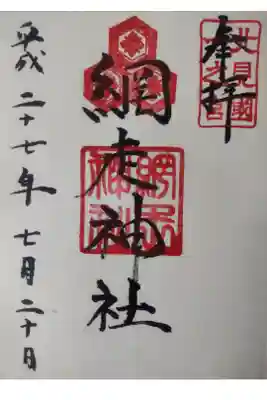 奉拝
北見國
一之宮
網走神社
網走神社
平成二十七年七月二十日